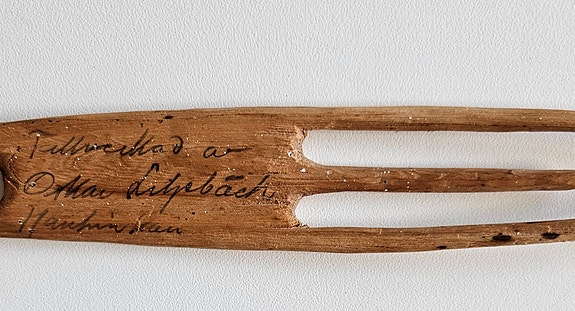 Tillverkad av
Oskar Liljebäck